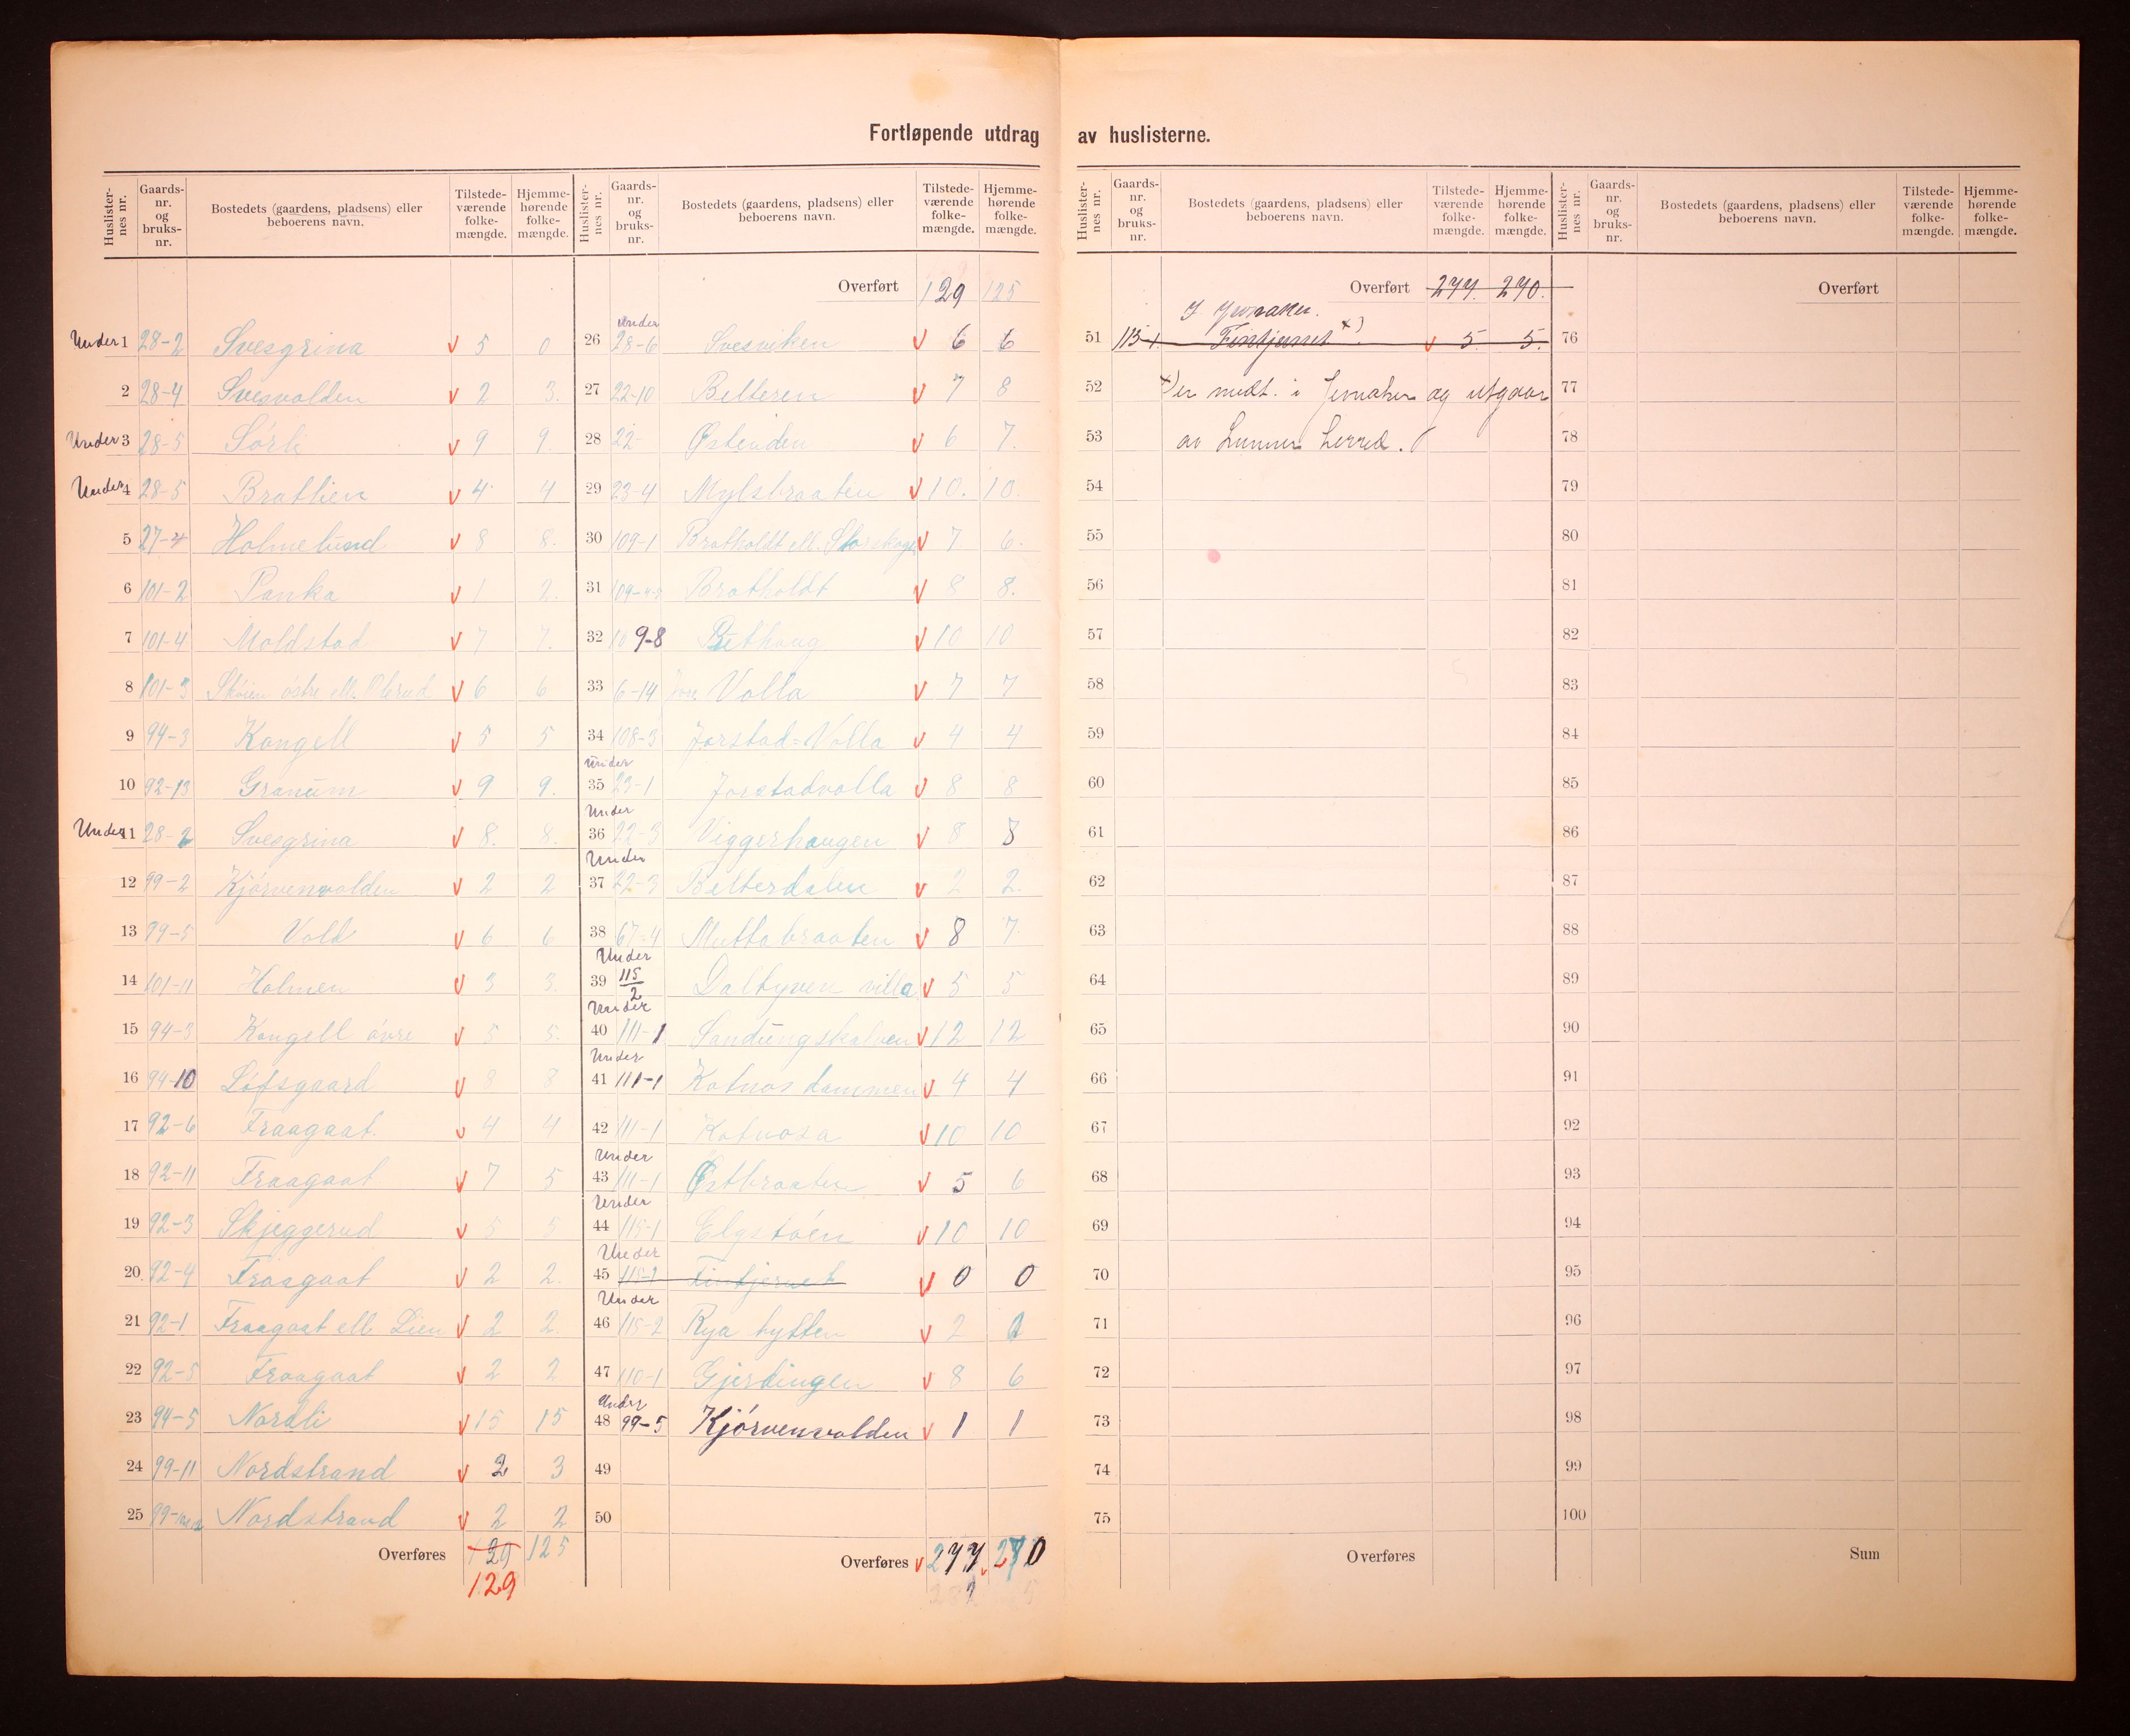 Fortløpende utdrag av huslisterne.
Huslister-nes nr. Gaards-nr. og bruks-nr. Bostedets (gaardens, pladsens) eller beboerens navn. Tilstede-værende folke-mængde. Hjemme-hørende folke-mængde.
Under 1 28-2 Svesgrina v 5 0
2 28-4 Svesvolden v 2 3.
Under 3 28-5 Sörli v 9 9.
Under 4 28-5 Bratlien v 4 4
5 27-4 Holmelund v 8 8.
6 101-2 Panka v 1 2.
7 101-4 Moldstad v 7 7.
8 101-3 Skóien óstre ell. Olerud v 6 6
9 94-3 Kongell v 5 5
10 92-13 Granum v 9 9.
Under 11 28-2 Svesgrina v 8. 8.
12 99-2 Kjórvenvolden v 2 2
13 99-5 Vold v 6 6
14 101-11 Holmen v 3 3.
15 94-3 Kongell óvre v 5 5.
16 94-10 Lófsgaard v 8 8
17 92-6 Fraagaat. v 4 4
18 92-11 Fraagaat v 7 5
19 92-3 Skjeggerud v 5 5
20. 92-4 Fraagaat v 2 2.
21 92-1 Fraagaat ell. Lien v 2 2
22 92-5 Fraagaat v 2 2
23 94-5 Nordli v 15 15
24 99-11 Nordstrand v 2 3
25 99- Nordstrand v 2 2
Overføres 129 125
129
Huslister-nes nr. Gaards-nr. og bruks-nr. Bostedets (gaardens, pladsens) eller beboerens navn. Tilstede-værende folke-mængde. Hjemme-hørende folke-mængde.
Overført 129 125
Under
26 28-6 Svesviken v 6 6
27 22-10 Belteren v 7 8
28 22- Østenden v 6 7.
29 23-4 Mylsbraaten v 10. 10.
30 109-1 Bratholdt ell. Storskogen v 7 6.
31 109-4-5 Bratholdt v 8 8.
32 109-8 Bethaug v 10 10
33 6-14 Volla v 7 7
34 108-3 Jorstad=Volla v 4 4
Under
35 23-1 Jorstadvolla v 8 8
Under
36 22-3 Viggerhaugen v 8 8
Under
37 22-3 Belterdalen v 2 2.
38 67-4 Muttabraaten v 8 7
Under
39 115/2 Daltyven villa v 5 5
Under
40 111-1 Sandungskalven v 12 12
Under
41 111-1 Katnosdammen v 4 4
42 111-1 Katnosa v 10 10
Under
43 111-1 Østbraaten v 5 6
Under
44 115-1 Elgstóen v 10 10
Under
45 115-1 Fintjernet v 0 0
Under
46 115-2 Rya hytten v 2
47 110-1 Gjerdingen v 8 6
Under
48 99-5 Kjórvenvolden v 1 1
49
50
Overføres v 277. 270
Huslister-nes nr. Gaards-nr. og bruks-nr. Bostedets (gaardens, pladsens) eller beboerens navn. Tilstede-værende folke-mængde. Hjemme-hørende folke-mængde.
Overført 277. 270.
I Jevnaker.
51 115-1. Fintjernet x) v 5. 5.
52 x) er medt. i Jevnaker og utgaar
53 av Lunner herred.
54
55
56
57
58
59
60
61
62
63
64
65
66
67
68
69
70
71
72
73
74
75
Overføres
Huslister-nes nr. Gaards-nr. og bruks-nr. Bostedets (gaardens, pladsens) eller beboerens navn. Tilstede-værende folke-mængde. Hjemme-hørende folke-mængde.
Overført
76
77
78
79
80
81
82
83
84
85
86
87
88
89
90
91
92
93
94
95
96
97
98
99
100
Sum